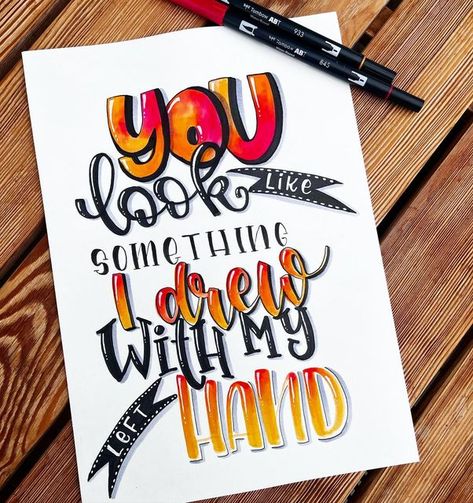 Tombow ABT 933
Tombow ABT 845
YOU
look LIKE
SOMETHING
I drew
WITH MY
LEFT HAND